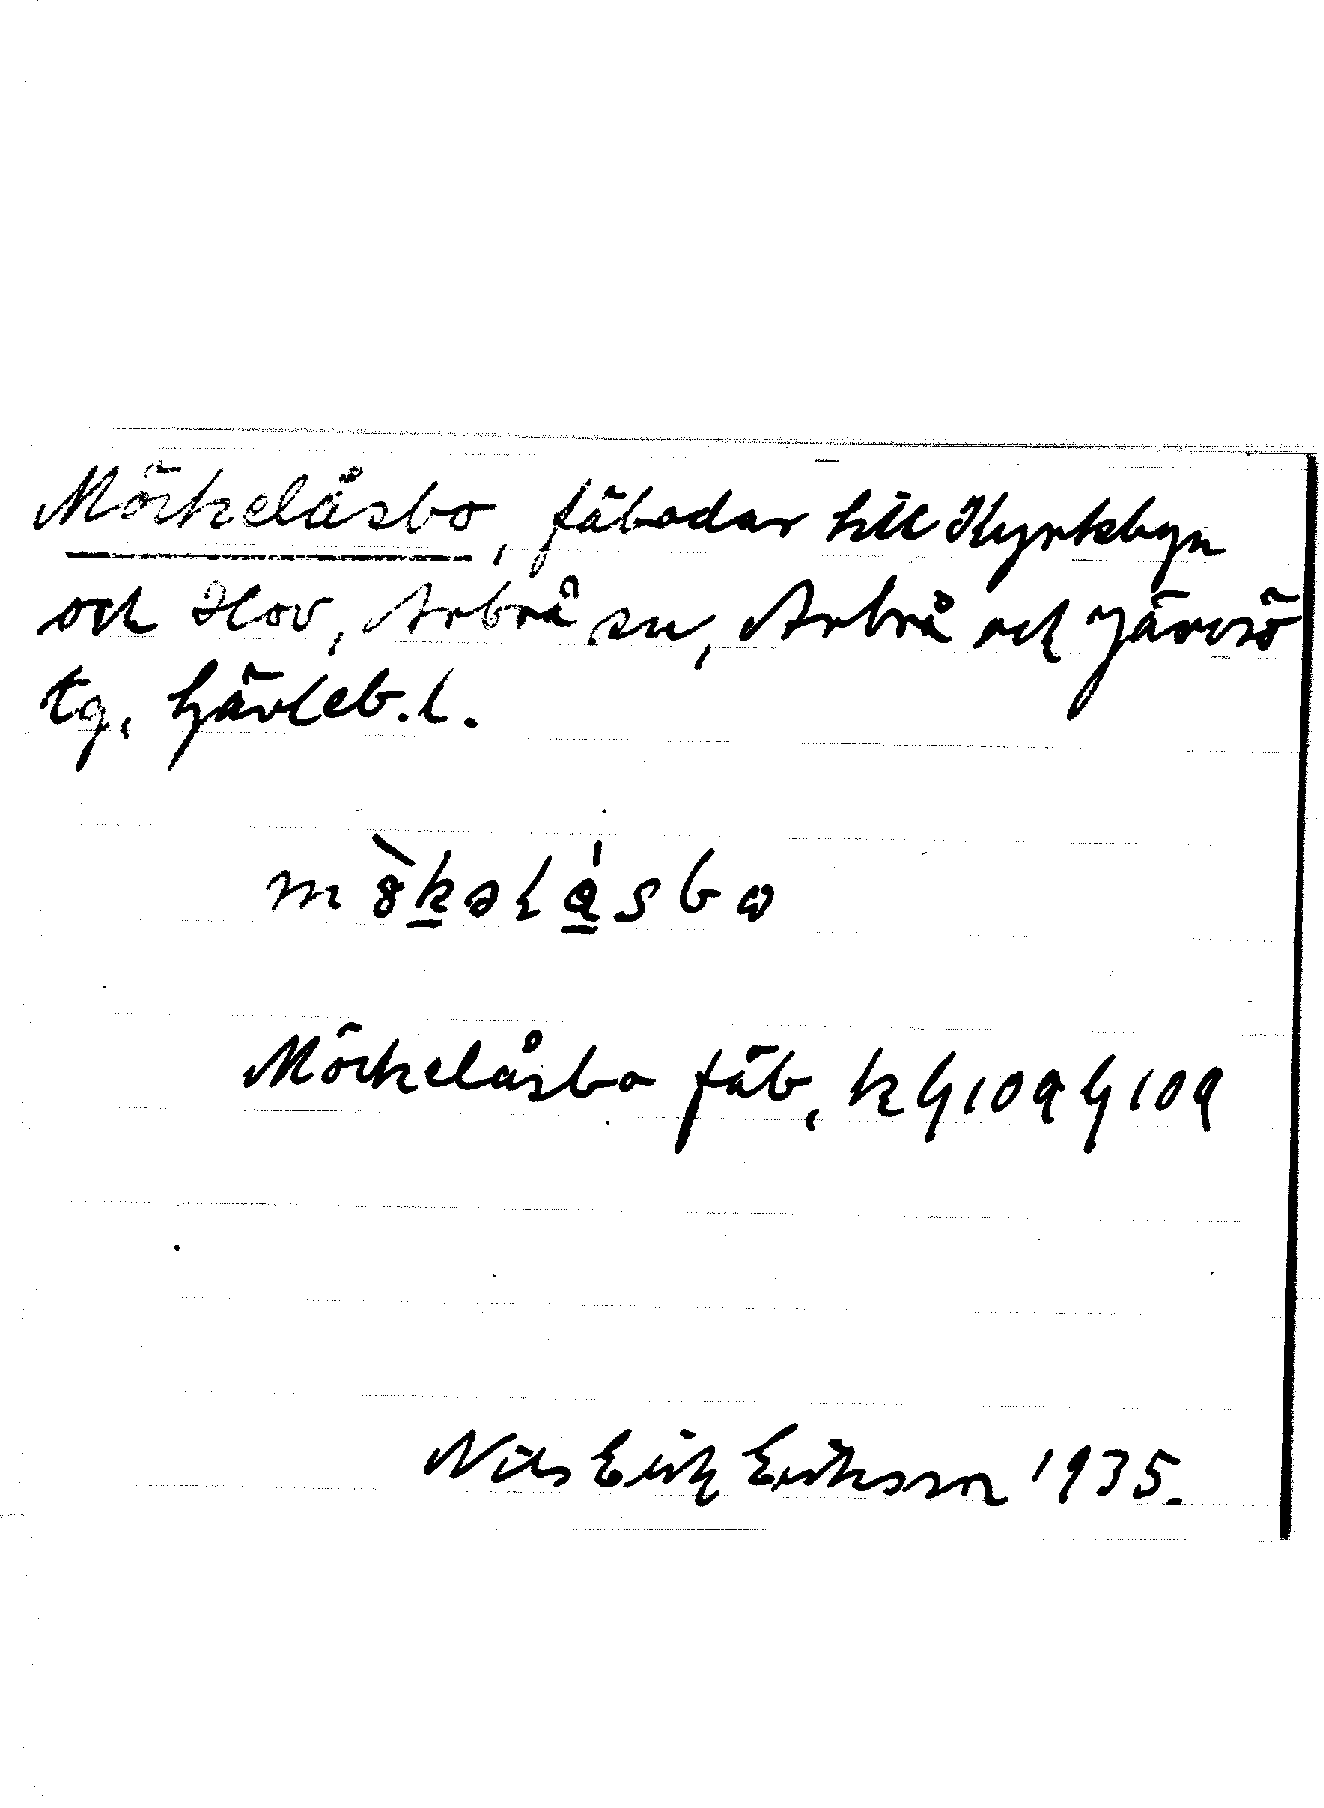 Möckelåsbo, fäbodar till Kyrkbyn
och Hov, Arbrå sn, Arbrå och Järvsö
tg, Gävleb. l.
Möckelåsbo fäb,
Nils Erik Eriksson 1935.